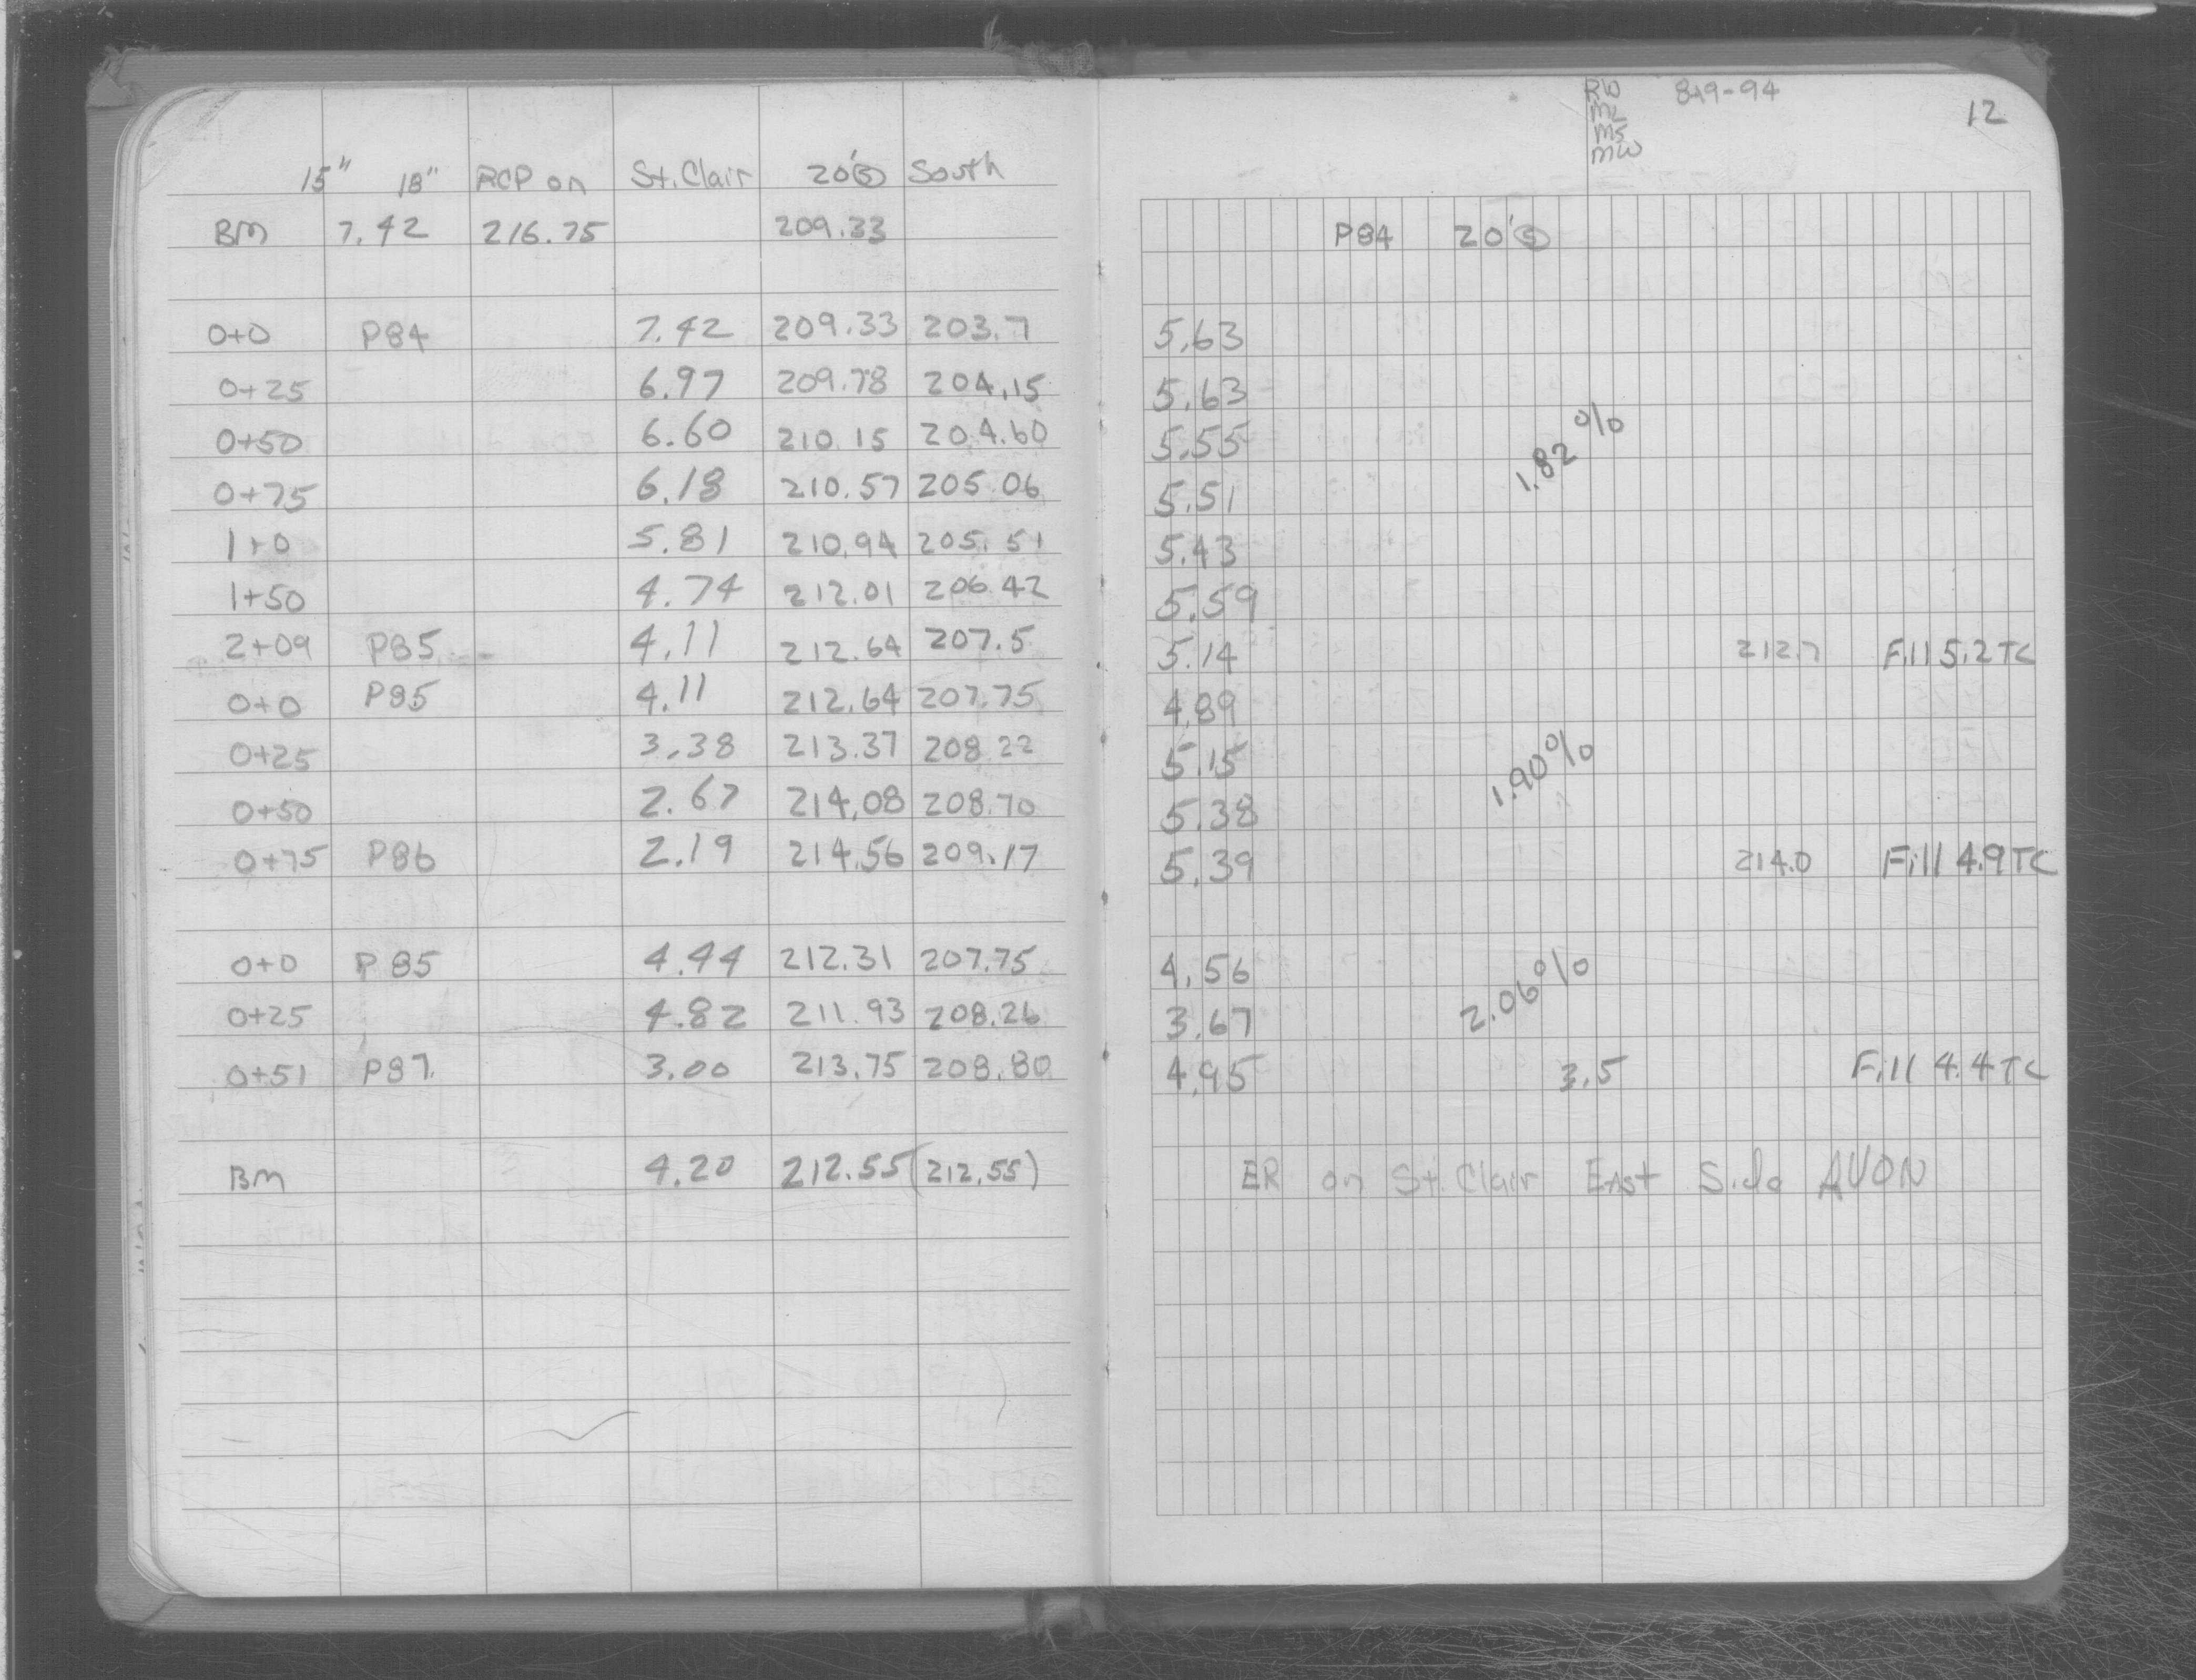 15" 18" RCP on St. Clair 20'Ⓢ South
BM 7.42 216.75 209.33
0+0 P84 7.42 209.33 203.7
0+25 6.97 209.78 204.15
0+50 6.60 210.15 204.60
0+75 6.18 210.57 205.06
1+0 5.81 210.94 205.51
1+50 4.74 212.01 206.42
2+09 P85 4.11 212.64 207.5
0+0 P85 4.11 212.64 207.75
0+25 3.38 213.37 208.22
0+50 2.67 214.08 208.70
0+75 P86 2.19 214.56 209.17
0+0 P85 4.44 212.31 207.75
0+25 4.82 211.93 208.26
0+51 P87 3.00 213.75 208.80
BM 4.20 212.55 (212.55)
RW 8-19-94
ML
MS
MW
12
P84 20'Ⓢ
5.63
5.63
5.55 1.82%
5.51
5.43
5.59
5.14 212.7 Fill 5.2 TC
4.89
5.15 1.90%
5.38
5.39 214.0 Fill 4.9 TC
4.56
3.67 2.06%
4.95 3.5 Fill 4.4 TC
ER on St. Clair East Side AVON